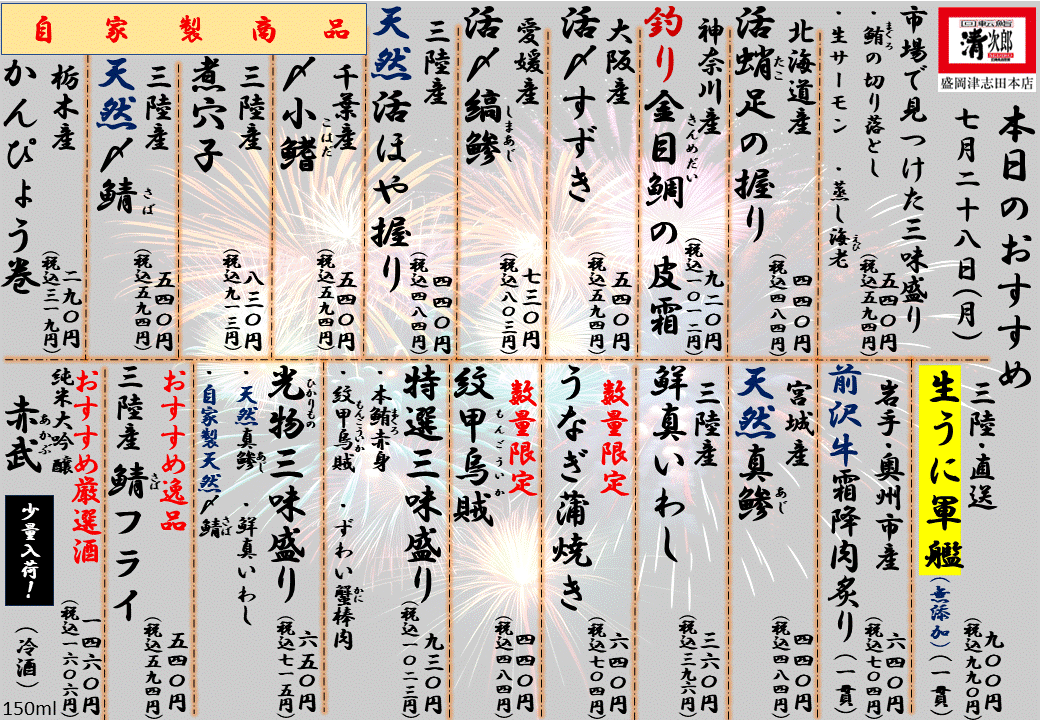 回転鮨
清次郎
盛岡津志田本店
本日のおすすめ
七月二十八日(月)
市場で見つけた三味盛り
・鮪の切り落とし
まぐろ
・生サーモン ・蒸し海老
えび
五四〇円
(税込五九四円)
北海道産
活蛸足の握り
たこ
四四〇円
(税込四八四円)
神奈川産
釣り金目鯛の皮霜
きんめだい
九二〇円
(税込一〇一二円)
大阪産
活〆すずき
五四〇円
(税込五九四円)
愛媛産
活〆縞鯵
しまあじ
七三〇円
(税込八〇三円)
三陸産
天然活ほや握り
四四〇円
(税込四八四円)
自家製商品
千葉産
〆小鰭
こはだ
五四〇円
(税込五九四円)
三陸産
煮穴子
八三〇円
(税込九一三円)
三陸産
天然〆鯖
さば
五四〇円
(税込五九四円)
栃木産
かんぴょう巻
二九〇円
(税込三一九円)
三陸・直送
生うに軍艦
(無添加)(一貫)
九〇〇円
(税込九九〇円)
岩手・奥州市産
前沢牛霜降肉炙り(一貫)
六四〇円
(税込七〇四円)
宮城産
天然真鯵
あじ
四四〇円
(税込四八四円)
三陸産
鮮真いわし
三六〇円
(税込三九六円)
数量限定
うなぎ蒲焼き
六四〇円
(税込七〇四円)
数量限定
紋甲烏賊
もんごういか
四四〇円
(税込四八四円)
特選三味盛り
・本鮪赤身
まぐろ
・紋甲烏賊 ・ずわい蟹棒肉
もんごういか
かに
九三〇円
(税込一〇二三円)
光物三味盛り
ひかりもの
・天然真鯵 ・鮮真いわし
あじ
・自家製天然〆鯖
さば
六五〇円
(税込七一五円)
おすすめ逸品
三陸産 鯖フライ
さば
五四〇円
(税込五九四円)
おすすめ厳選酒
純米大吟醸
赤武
あかぶ
少量入荷!
(冷酒)
一四六〇円
(税込一六〇六円)
150ml